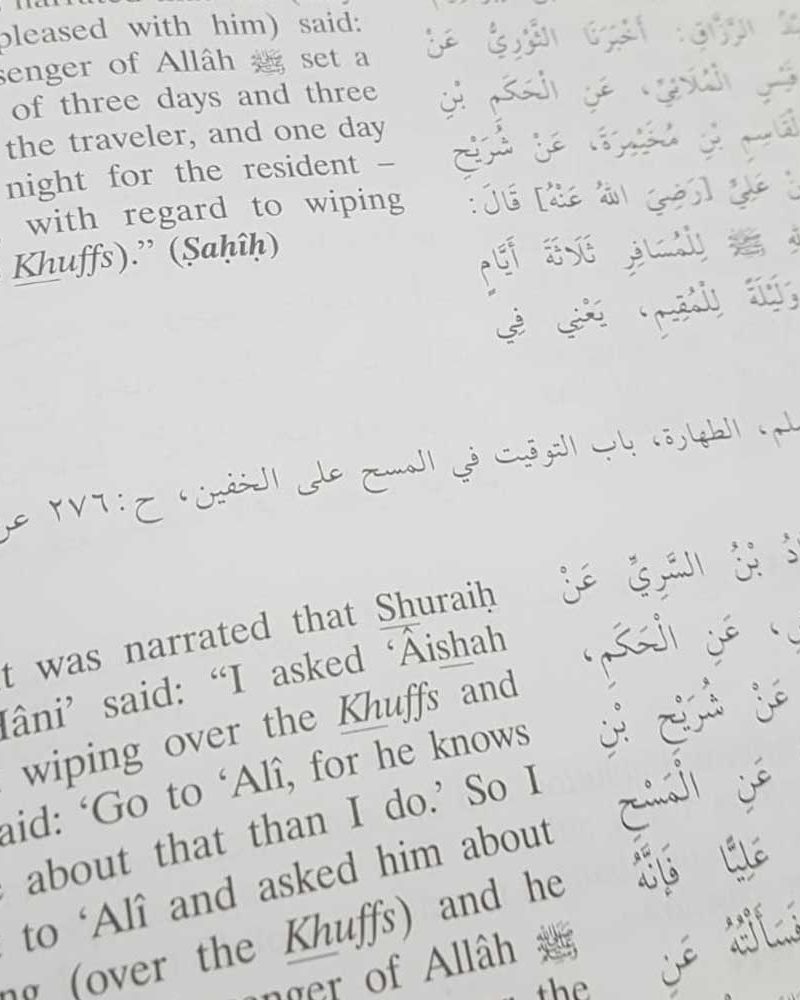 pleased with him) said:
senger of Allâh ﷺ set a
of three days and three
the traveler, and one day
night for the resident –
with regard to wiping
Khuffs).” (Ṣaḥîḥ)
الرَّزَّاقِ: أَخْبَرَنَا الثَّوْرِيُّ عَنْ
قَيْسٍ الْمُلَائِيِّ، عَنِ الْحَكَمِ بْنِ
الْقَاسِمِ بْنِ مُخَيْمِرَةَ، عَنْ شُرَيْحِ
عَلِيٍّ [رَضِيَ اللهُ عَنْهُ] قَالَ:
ﷺ لِلْمُسَافِرِ ثَلَاثَةَ أَيَّامٍ
وَلَيْلَةً لِلْمُقِيمِ، يَعْنِي فِي
سلم، الطهارة، باب التوقيت في المسح على الخفين، ح: ٢٧٦
t was narrated that Shuraiḥ
Hâni’ said: “I asked ‘Âishah
wiping over the Khuffs and
said: ‘Go to ‘Alî, for he knows
about that than I do.’ So I
to ‘Alî and asked him about
ng (over the Khuffs) and he
enger of Allâh ﷺ
the
بْنُ السَّرِيِّ عَنْ
عَنِ الْحَكَمِ،
عَنْ شُرَيْحِ بْنِ
عَنِ الْمَسْحِ
عَلِيًّا فَإِنَّهُ
فَسَأَلْتُهُ عَنِ